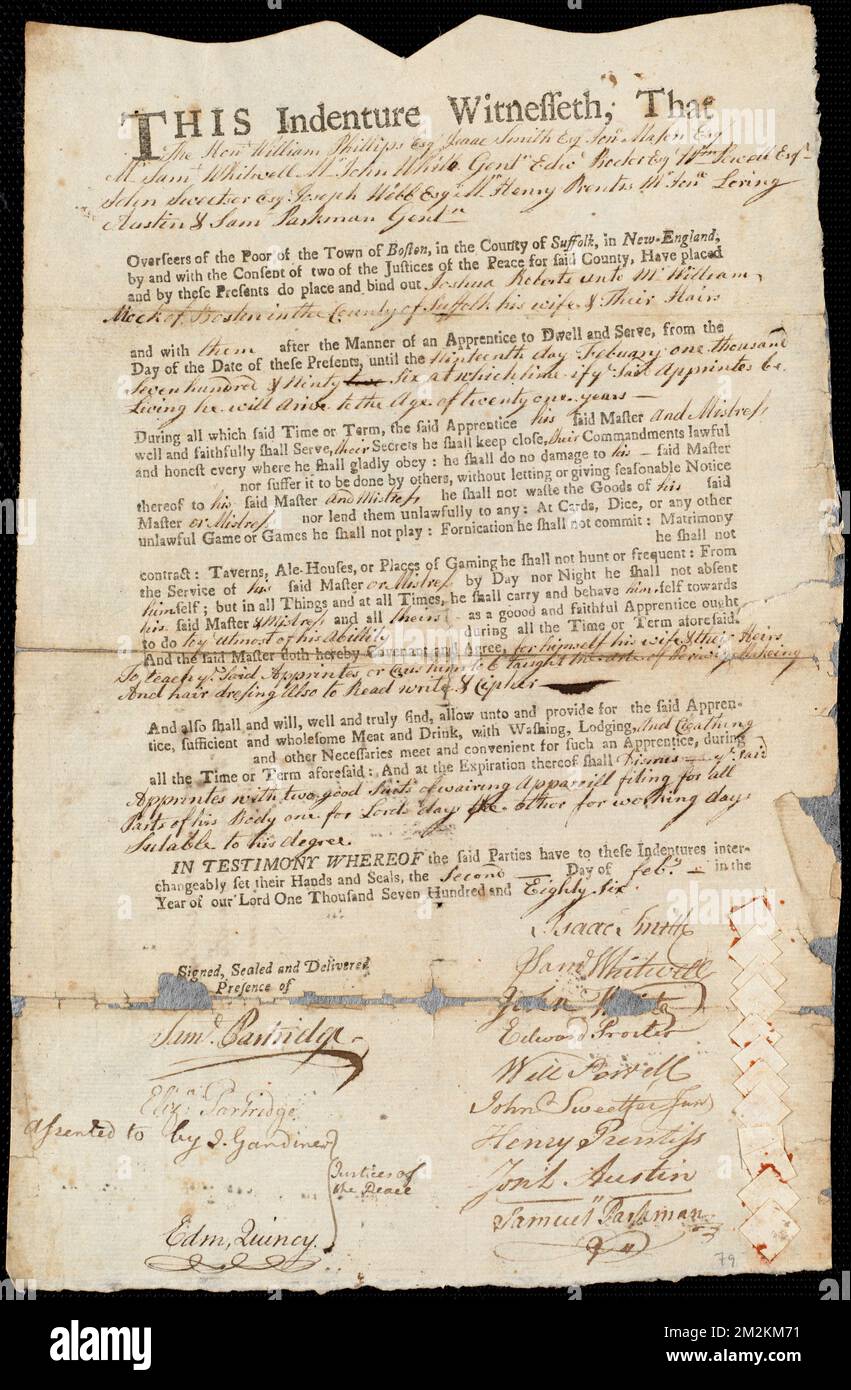 THIS Indenture Witnesseth, That
The Honl William Phillips Esqr Isaac Smith Esq Jonn Mason Esq
Mr Saml Whitwell Mr John White Gentn Edwd Procter Esqr Wm Powell Esqr
John Sweetser Esqr Joseph Webb Esqr Mr Henry Prentis Mr Jonn Loring
Austin & Saml Parkman Gentn
Overseers of the Poor of the Town of Boston, in the County of Suffolk, in New-England,
by and with the Consent of two of the Justices of the Peace for said County, Have placed
and by these Presents do place and bind out Joshua Roberts unto Mr William
Mock of Boston in the County of Suffolk his wife & Their Hairs
and with them after the Manner of an Apprentice to Dwell and Serve, from the
Day of the Date of these Presents, until the ninteenth day Febuary one thousand
Seven hundred & Ninty Six at which time if ye Said Apprintes be
Living he will arive to the Age of twenty one years —
During all which said Time or Term, the said Apprentice his said Master and Mistress
well and faithfully shall Serve, their Secrets he shall keep close, their Commandments lawful
and honest every where he shall gladly obey: he shall do no damage to his — said Master
nor suffer it to be done by others, without letting or giving seasonable Notice
thereof to his said Master and Mistress he shall not waste the Goods of his said
Master or Mistress nor lend them unlawfully to any: At Cards, Dice, or any other
unlawful Game or Games he shall not play: Fornication he shall not commit: Matrimony
he shall not
contract: Taverns, Ale-Houses, or Places of Gaming he shall not hunt or frequent: From
the Service of his said Master or Mistress by Day nor Night he shall not absent
himself; but in all Things and at all Times, he shall carry and behave himself towards
his said Master & Mistress and all theirs — as a goood and faithful Apprentice ought
to do to ye utmost of his Abillity during all the Time or Term aforesaid.
And the said Master doth hereby Covenant and Agree, for himself his wife & their Heirs
To teach ye Said Apprintes or Caus him to be taught the art of Periwig Makeing
And hair dresing also to Read write & Cipher
And also shall and will, well and truly find, allow unto and provide for the said Appren-
tice, sufficient and wholesome Meat and Drink, with Washing, Lodging, and Cloathing
and other Necessaries meet and convenient for such an Apprentice, during
all the Time or Term aforesaid: And at the Expiration thereof shall Dismis — ye Said
Apprintes with two good Suits of wairing Apparrill fiting for all
Parts of his Body one for Lords days the other for working days
Sutable to his degree.
IN TESTIMONY WHEREOF the said Parties have to these Indentures inter-
changeably set their Hands and Seals, the Second — Day of Feby — in the
Year of our Lord One Thousand Seven Hundred and Eighty Six.
Isaac Smith
Signed, Sealed and Delivered
Presence of
Saml Whitwell
John White
Saml Partridge
Edward Procter
Will Powell
Elizh Partridge
John Sweetser Junr
assented to by J. Gardiner
Henry Prentiss
Justices of
the Peace
Jonn L Austin
Samuel Parkman
Edm, Quincy
79
alamy
Image ID: 2M2KM71
www.alamy.com